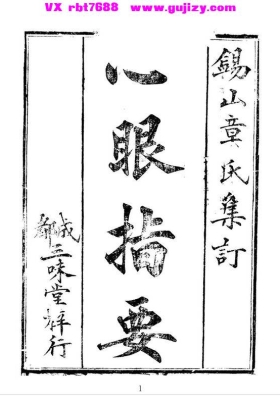 VX rbt7688 www.gujizy.com
錫山章氏集訂
心眼指要
成都三味堂梓行
1